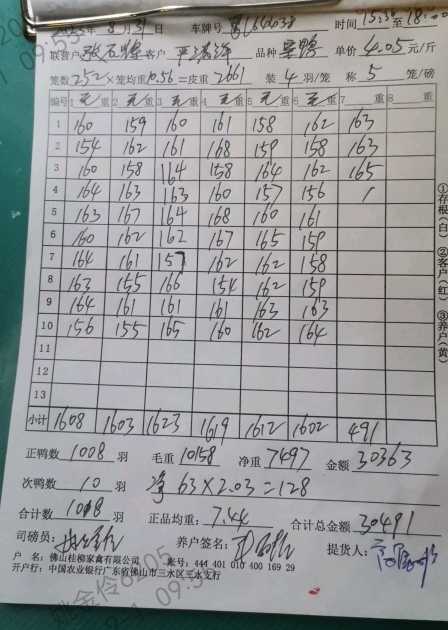 8月31日 车牌号 时间 15:30 至 18:00
联营户 客户 品种 单价 4.05 元/斤
笼数 252 × 笼均重 10.56 = 皮重 2661 装 4 羽/笼 称 5 笼/磅
编号 1 毛 重 2 毛 重 3 毛 重 4 毛 重 5 毛 重 6 毛 重 7 重 8 重
1 160 159 160 161 158 162 163
2 154 162 161 168 159 158 163
3 160 158 164 158 164 162 165
4 164 163 163 160 157 156 /
5 163 167 164 168 160 161
6 160 162 162 167 165 159
7 164 161 157 162 162 158
8 163 155 166 154 162 159
9 164 161 161 161 163 163
10 156 155 165 160 162 164
11
12
13
小计 1608 1603 1623 1619 1612 1602 491
①存根(白) ②客户(红) ③养户(黄)
正鸭数 1008 羽 毛重 10158 净重 7497 金额 30363
次鸭数 10 羽 净 63×2.03=128
合计数 1018 羽 正品均重: 7.44 合计总金额 30491
司磅员: 养户签名: 提货人:
户 名: 佛山桂柳家禽有限公司 账号: 444 401 010 400 169 29
开户行: 中国农业银行广东省佛山市三水区三水支行